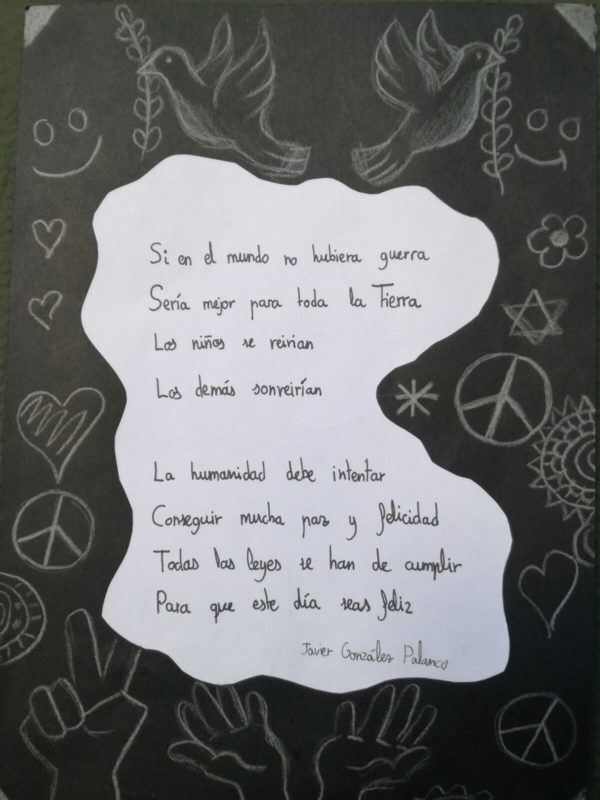 Si en el mundo no hubiera guerra
Sería mejor para toda la Tierra
Los niños se reirían
Los demás sonreirían
La humanidad debe intentar
Conseguir mucha paz y felicidad
Todas las leyes se han de cumplir
Para que este día seas feliz
Javier González Palanco